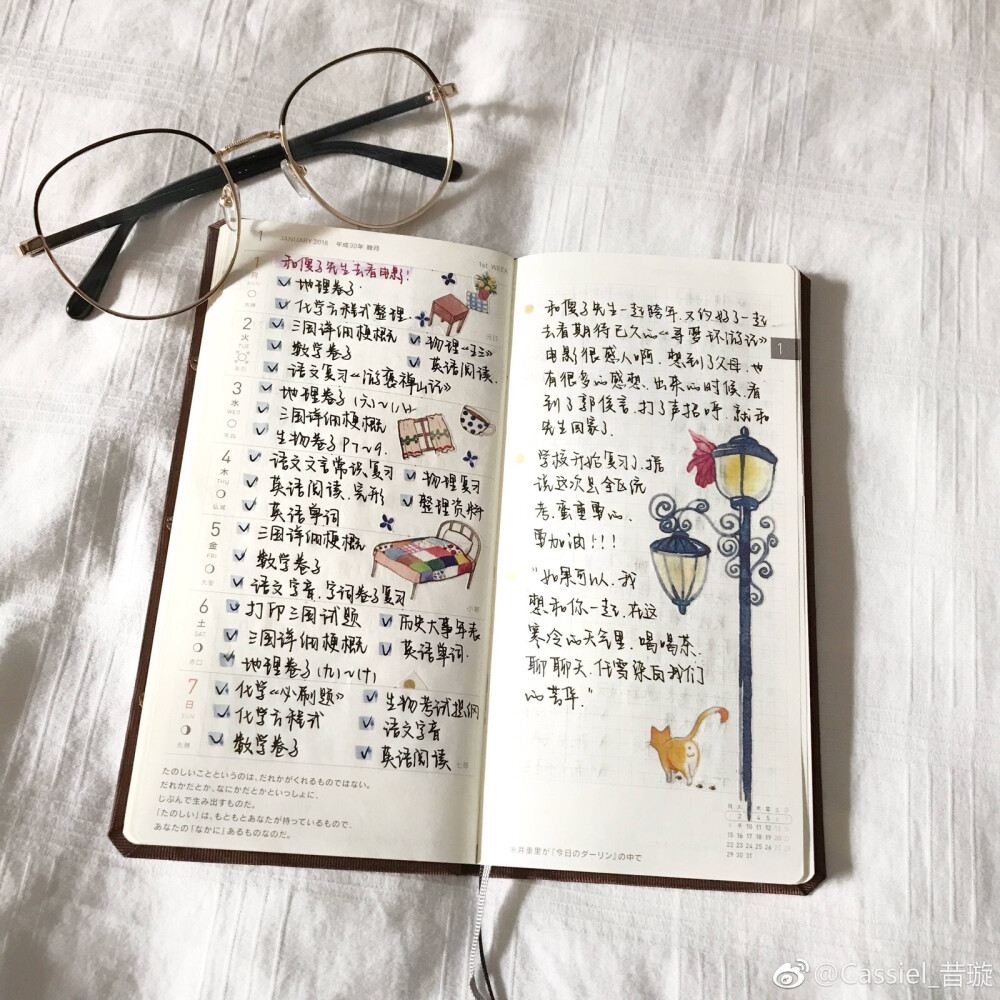 1 JANUARY 2018 平成30年 睦月
1st WEEK
1 月
和傻子先生去看电影!
✓ 地理卷子.
✓ 化学方程式整理.
2 火 TUE
✓ 三国详细梗概 ✓ 物理《王三》
✓ 数学卷子 ✓ 英语阅读.
✓ 语文复习《游褒禅山记》
3 水 WED
✓ 地理卷子(六)~(八)
✓ 三国详细梗概
✓ 生物卷子P7~9.
4 木 THU
✓ 语文文言常识复习 ✓ 物理复习
✓ 英语阅读.完形 ✓ 整理资料
✓ 英语单词
5 金 FRI
✓ 三国详细梗概
✓ 数学卷子
✓ 语文字音.字词卷子复习
小寒
6 土 SAT
✓ 打印三国试题 ✓ 历史大事年表
✓ 三国详细梗概 ✓ 英语单词.
✓ 地理卷子(九)~(十)
7 日 SUN
✓ 化学《必刷题》 ✓ 生物考试提纲
✓ 化学方程式 ✓ 语文字音
✓ 数学卷子 ✓ 英语阅读
七草
たのしいことというのは、だれかがくれるものではない。
だれかだとか、なにかだとかといっしょに、
じぶんで生み出すものだ。
「たのしい」は、もともとあなたが持っているもので、
あなたの「なかに」あるものなのだ。
和傻子先生一起跨年.又约好了一起
去看期待已久的《寻梦环游记》
电影很感人啊.想到了父母.也
有很多的感想.出来的时候.看
到了郭俊言.打了声招呼.就和
先生回家了.
学校开始复习了.据
说这次是全区统
考.蛮重要的.
要加油!!!
"如果可以.我
想和你一起.在这
寒冷的天气里.喝喝茶.
聊聊天.任雾染白我们
的苦华."
1
月 火 木 金 土 日
2 3 4 5 6 7
8 9 10 11 12 13 14
15 16 17 18 19 20 21
22 23 24 25 26 27 28
29 30 31
糸井重里が『今日のダーリン』の中で
@Cassiel_昔璇